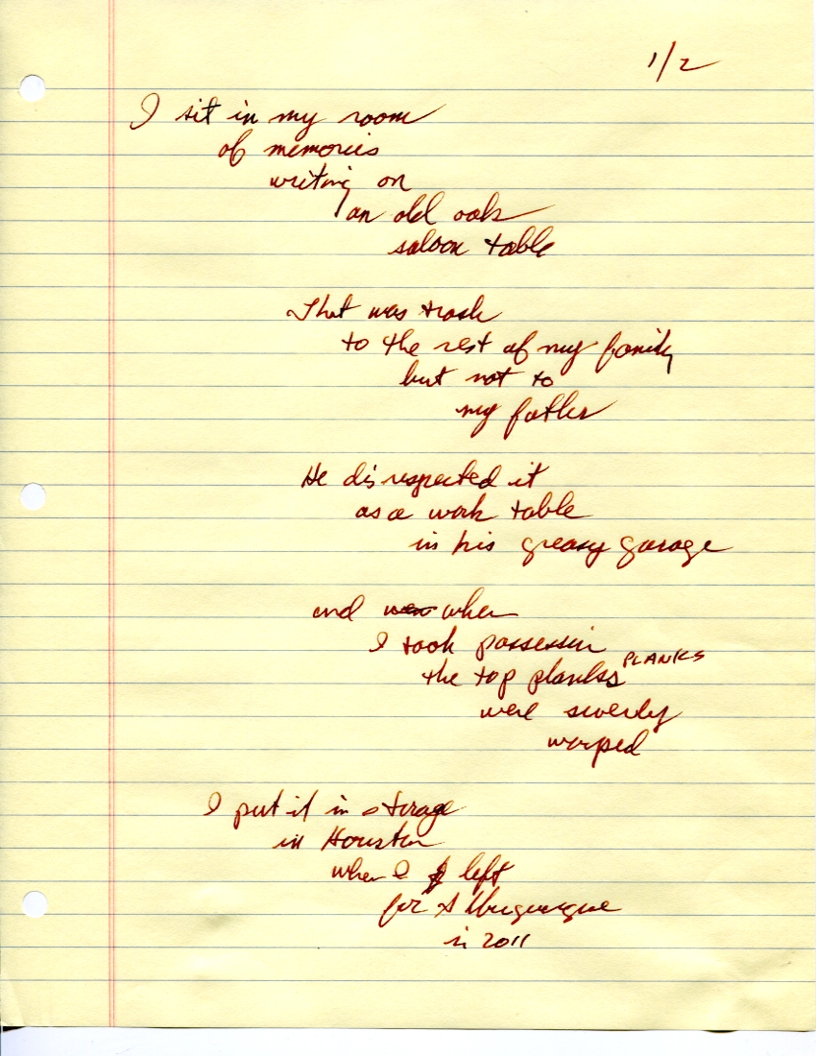 1/2
I sit in my room
of memories
writing on
an old oak
saloon table
That was trash
to the rest of my family
but not to
my father
He disrespected it
as a work table
in his greasy garage
and when
I took possession
PLANKS
the top planks
were severely
warped
I put it in storage
in Houston
when I left
for Albuquerque
in 2011